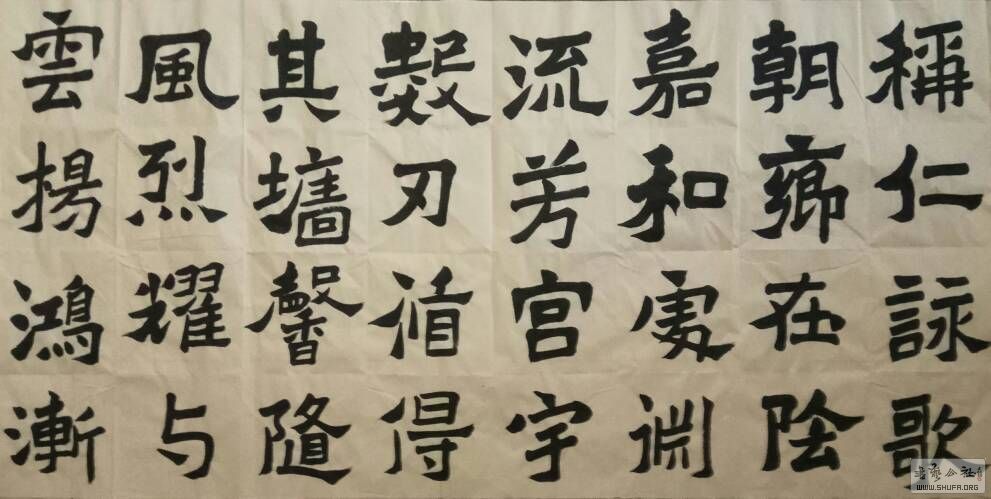 稱仁詠歌
朝鄉在陰
嘉和處淵
流芳宫宇
數刃循得
其墻馨隨
風烈耀与
雲揚鴻漸
书艺公社
WWW.SHUFA.ORG